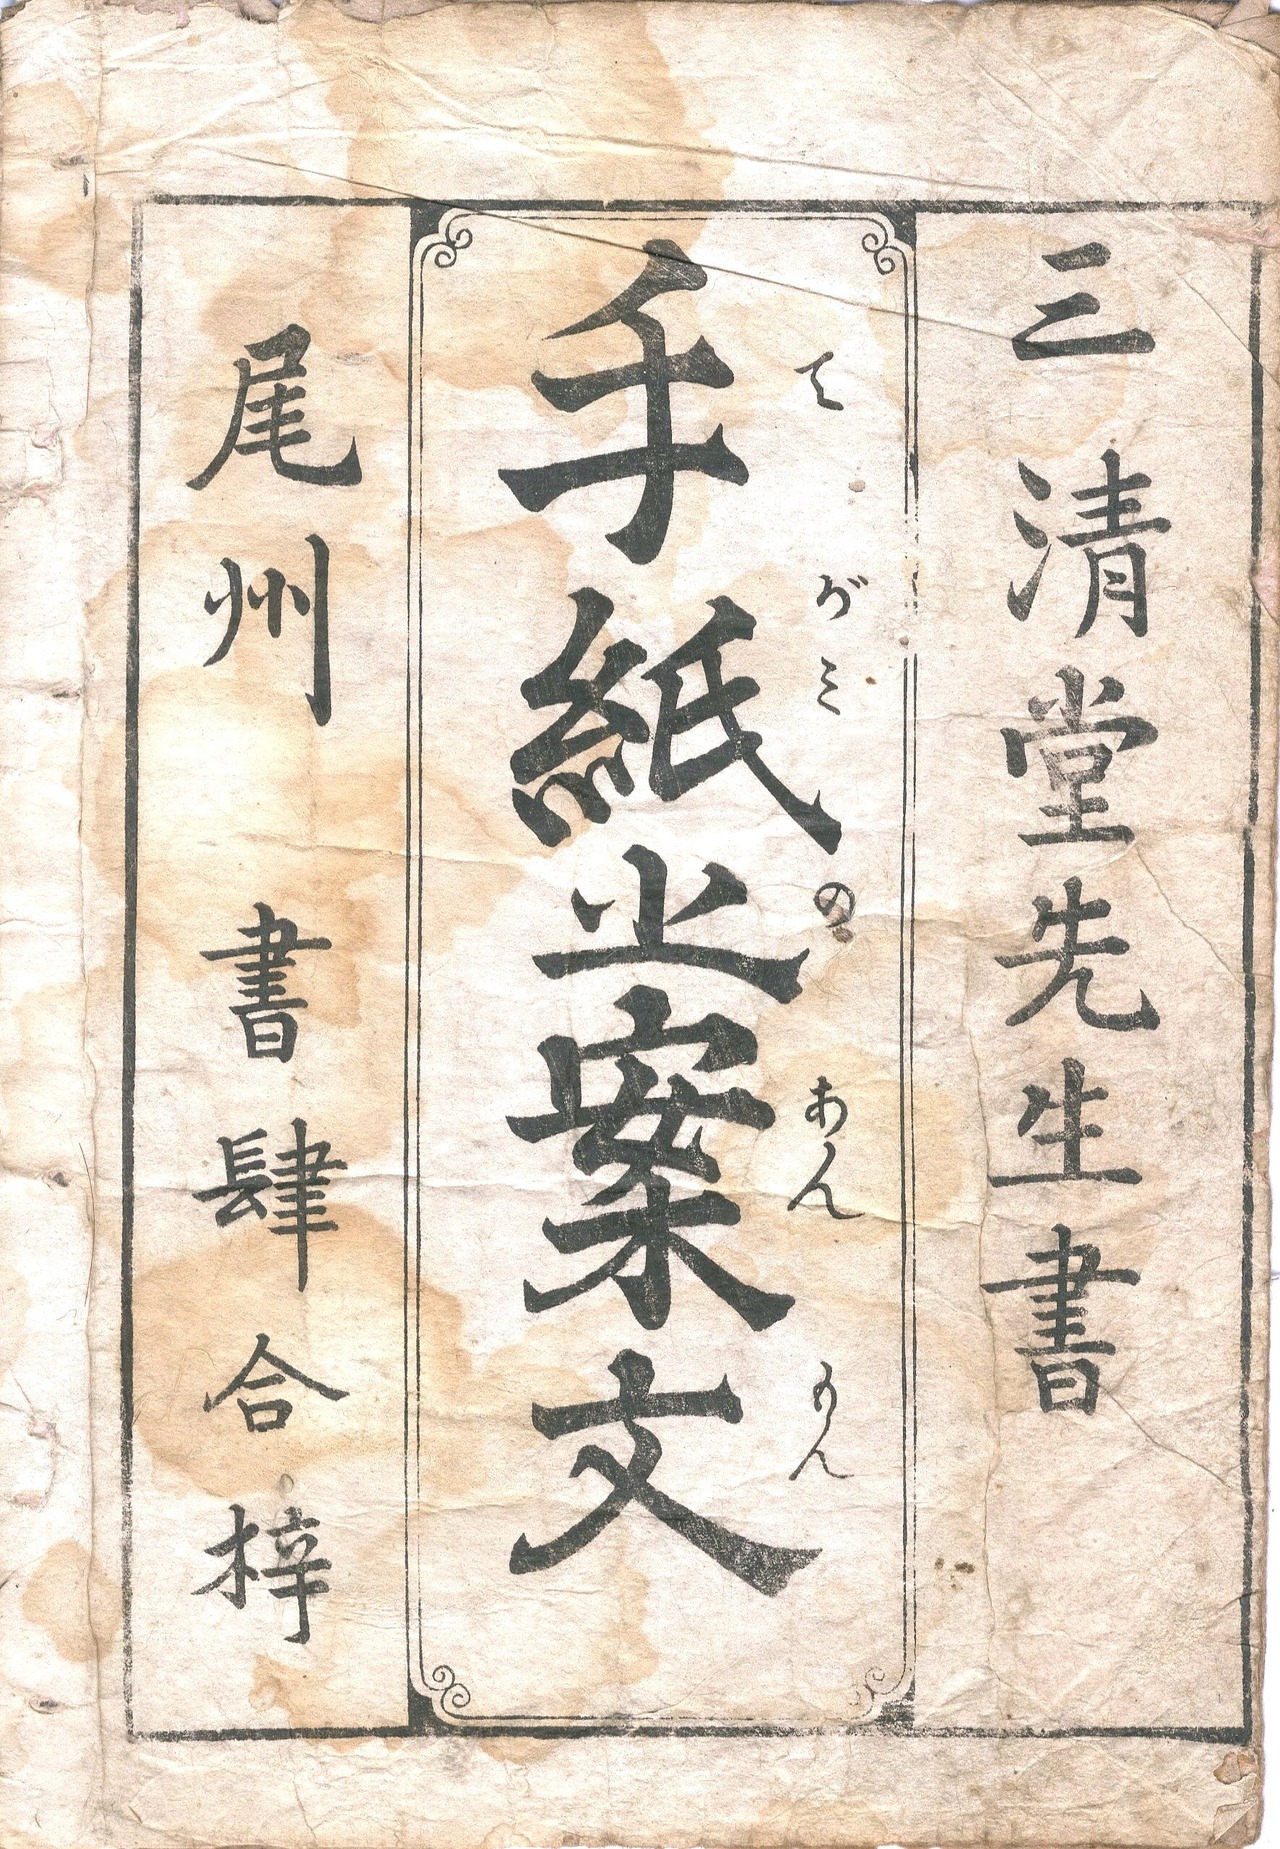 三清堂先生書
手紙之案文
てがみのあんもん
尾州 書肆合梓